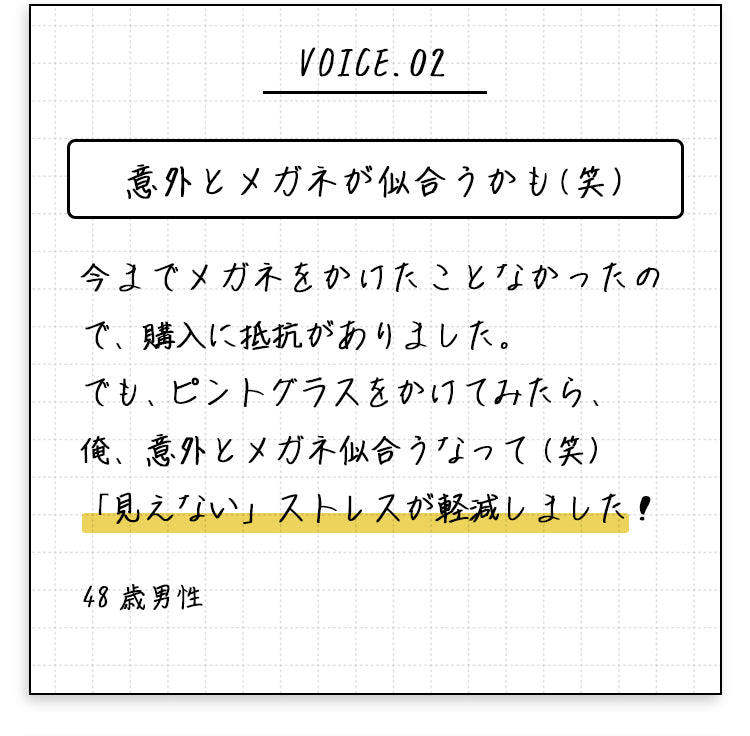 VOICE.02
意外とメガネが似合うかも(笑)
今までメガネをかけたことなかったの
で、購入に抵抗がありました。
でも、ピントグラスをかけてみたら、
俺、意外とメガネ似合うなって(笑)
「見えない」ストレスが軽減しました!
48歳男性